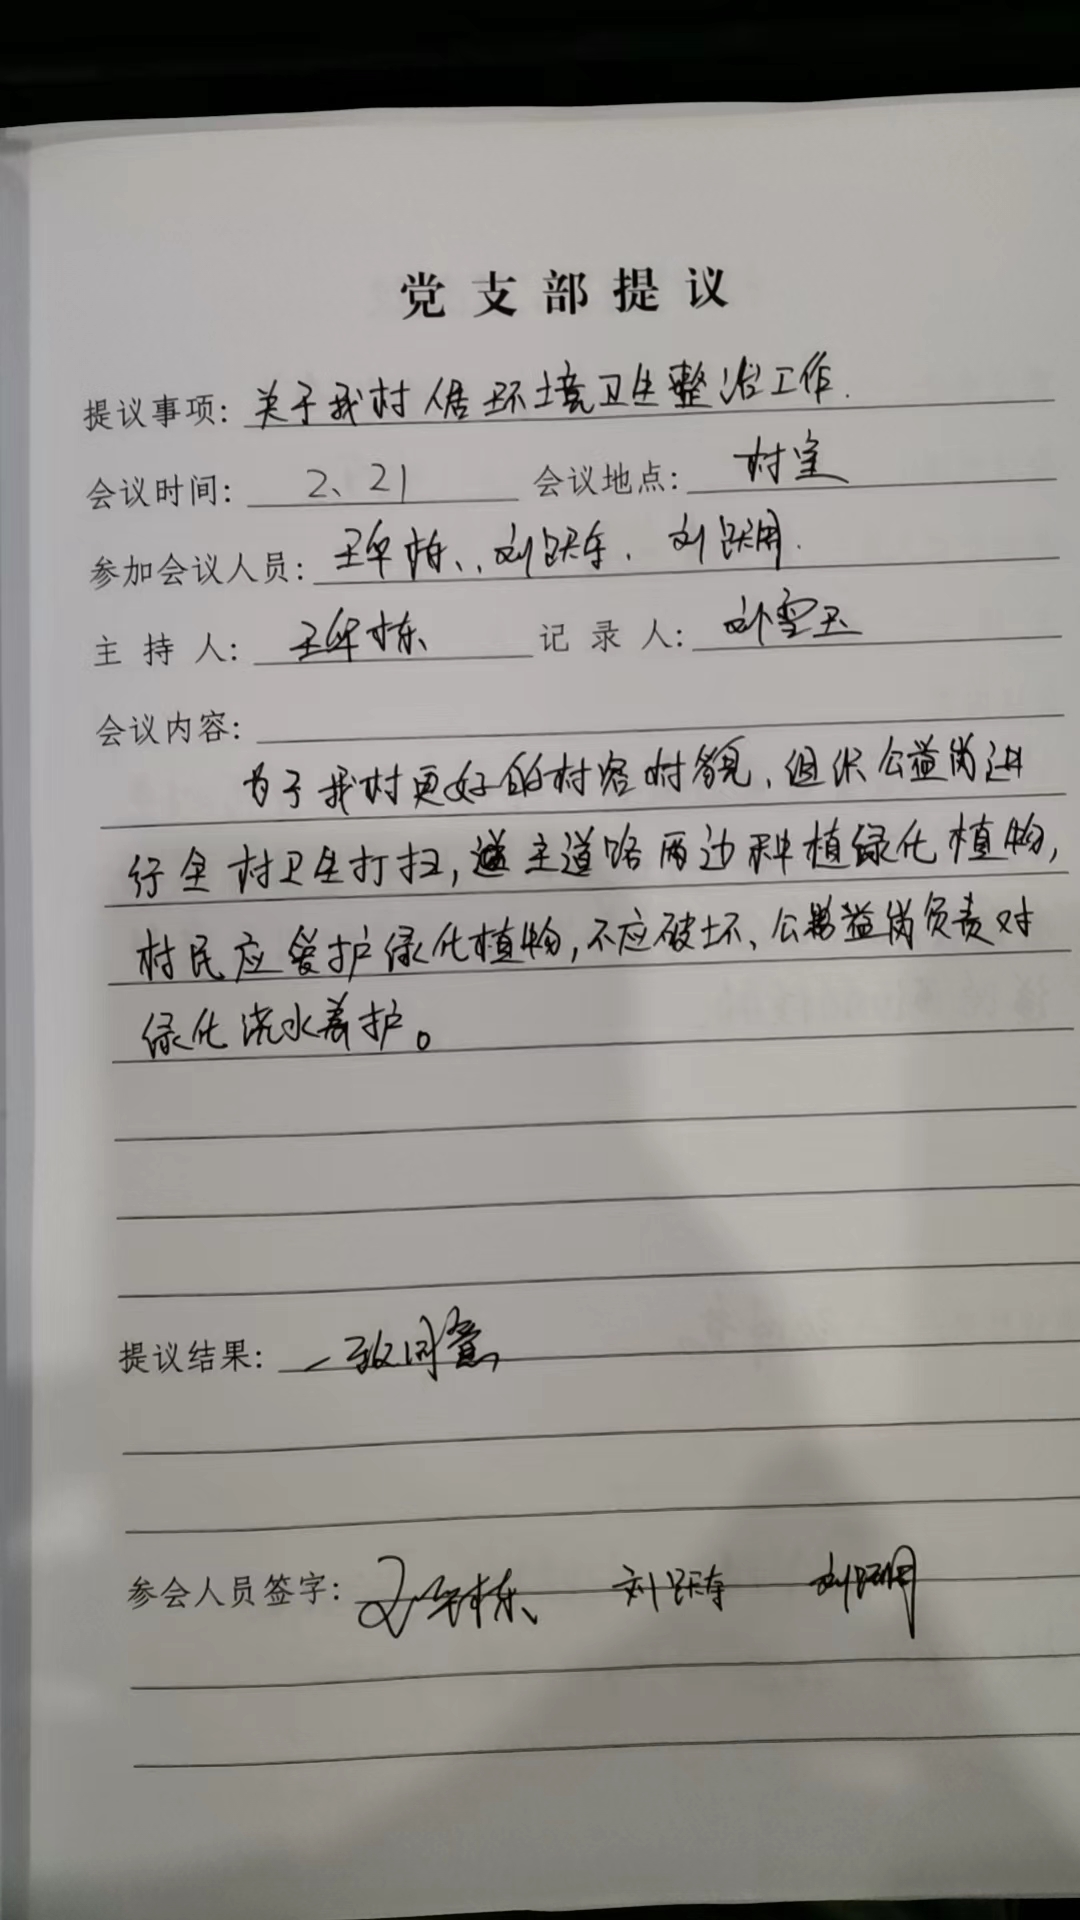 党支部提议
提议事项: 关于我村人居环境卫生整治工作.
会议时间: 2、21 会议地点: 村室
参加会议人员: 王军栋、刘跃东. 刘跃明.
主持人: 王军栋 记录人: 刘雪玉
会议内容:
为了我村更好的村容村貌,组织公益岗进
行全村卫生打扫,主道路两边种植绿化植物,
村民应爱护绿化植物,不应破坏、公益岗负责对
绿化浇水养护。
提议结果: 一致同意
参会人员签字: 王军栋、 刘跃东 刘跃明